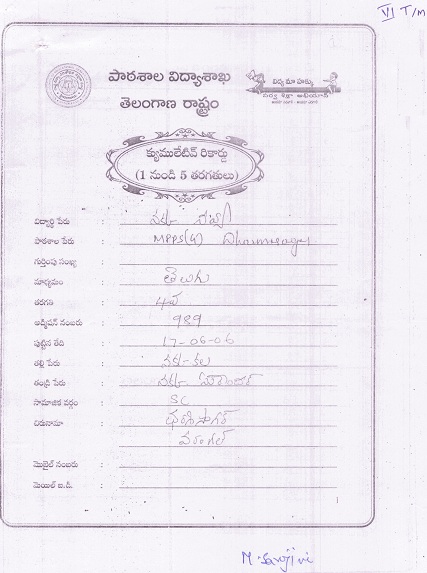 VI T/M
పాఠశాల విద్యాశాఖ
తెలంగాణ రాష్ట్రం
విద్య మా హక్కు
సర్వ శిక్షా అభియాన్
క్యుములేటివ్ రికార్డు
(1 నుండి 5 తరగతులు)
విద్యార్థి పేరు :
పాఠశాల పేరు : MPPS(G) Dharmasagar
గుర్తింపు సంఖ్య :
మాధ్యమం : తెలుగు
తరగతి : 4వ
అడ్మిషన్ నంబరు : 989
పుట్టిన తేది : 17-06-06
తల్లి పేరు : కల
తండ్రి పేరు :
సామాజిక వర్గం : SC
చిరునామా : ధర్మసాగర్
వరంగల్
మొబైల్ నంబరు :
మెయిల్ ఐ.డి. :
M. Sarojini